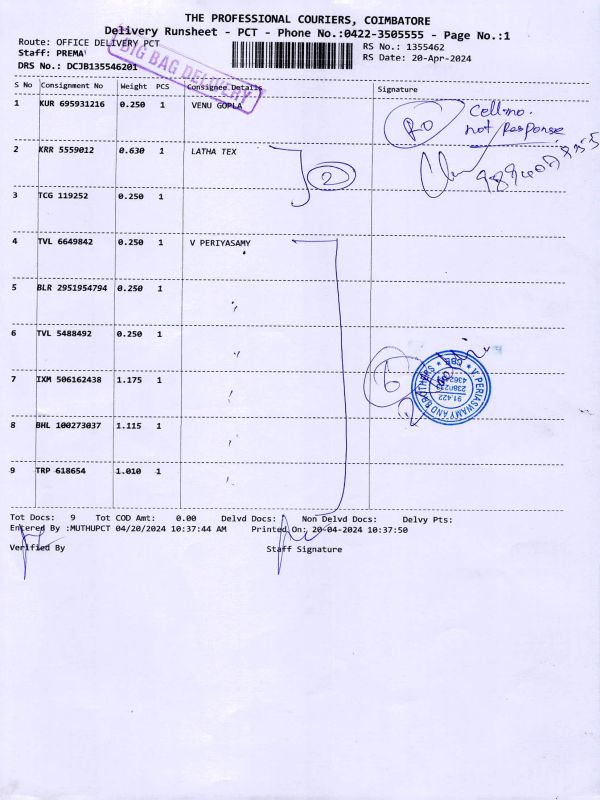 THE PROFESSIONAL COURIERS, COIMBATORE
Delivery Runsheet - PCT - Phone No.:0422-3505555 - Page No.:1
Route: OFFICE DELIVERY PCT
Staff: PREMA
DRS No.: DCJB135546201
RS No.: 1355462
RS Date: 20-Apr-2024
BIG BAG DELIVERY
S No Consignment No Weight PCS Consignee Details Signature
1 KUR 695931216 0.250 1 VENU GOPLA
RO
Cell no.
not Response
2 KRR 5559012 0.630 1 LATHA TEX
2
3 TCG 119252 0.250 1
4 TVL 6649842 0.250 1 V PERIYASAMY
5 BLR 2951954794 0.250 1 "
6 TVL 5488492 0.250 1 "
7 IXM 506162438 1.175 1 "
8 BHL 100273037 1.115 1 "
9 TRP 618654 1.010 1 "
6
V PERIASWAMY AND BROTHERS * CBE *
Tot Docs: 9 Tot COD Amt: 0.00 Delvd Docs: Non Delvd Docs: Delvy Pts:
Entered By :MUTHUPCT 04/20/2024 10:37:44 AM Printed On: 20-04-2024 10:37:50
Verified By Staff Signature